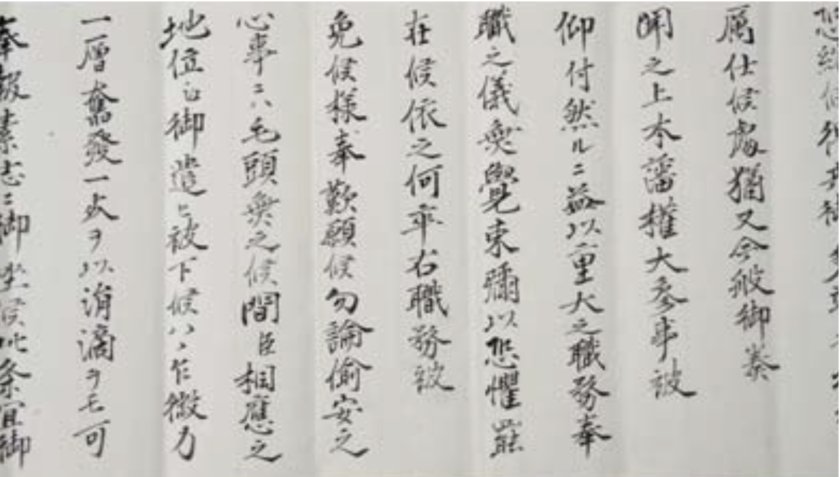 属仕候處猶又今般御奏
聞之上本藩權大参事被
仰付然ルニ益以重大之職務奉
職之儀無覺束彌以恐懼罷
在候依之何卒右職務被
免候様奉歎願候勿論偷安之
心事ニハ毛頭無之候間臣相應之
地位御遣ヒ被下候ハヽ乍微力
一層奮發一死ヲ以涓滴ヲモ可
奉報素志ニ御坐候此条宜御